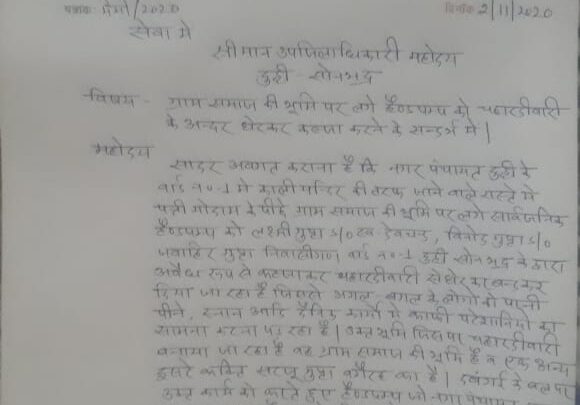 पत्रांक मेमो/2020 दिनांक 2/11/2020
सेवा मे
श्रीमान उपजिलाधिकारी महोदय
दुद्दी - सोनभद्र
विषय - ग्राम समाज की भूमि पर लगे हैण्डपम्प को चहारदीवारी
के अन्दर घेरकर कब्जा करने के सन्दर्भ मे |
महोदय
सादर अवगत कराना है कि नगर पंचायत दुद्दी के
वार्ड न०-1 मे काली मन्दिर की तरफ जाने वाले रास्ते मे
पत्ती गोदाम के पीछे ग्राम समाज की भूमि पर लगे सार्वजनिक
हैण्डपम्प को लक्ष्मी गुप्ता S/o स्व. देवचन्द, विनोद गुप्ता S/o
जवाहिर गुप्ता निवासीगण वार्ड न०-1 दुद्दी सोनभद्र के द्वारा
अवैध रूप से कब्जाकर चहारदीवारी से घेरकर बन्द कर
दिया जा रहा है जिससे अगल बगल के लोगो को पानी
पीने, स्नान आदि दैनिक कार्यो मे काफी परेशानियो का
सामना करना पड़ रहा है | उक्त भूमि जिसपर चहारदीवारी
बनाया जा रहा है वह ग्राम समाज की भूमि है व एक अन्य
दूसरे व्यक्ति सरजू गुप्ता वगैरह का है | दबंगई के बल पर
उक्त कार्य को करते हुए हैण्डपम्प जो नगर पंचायत